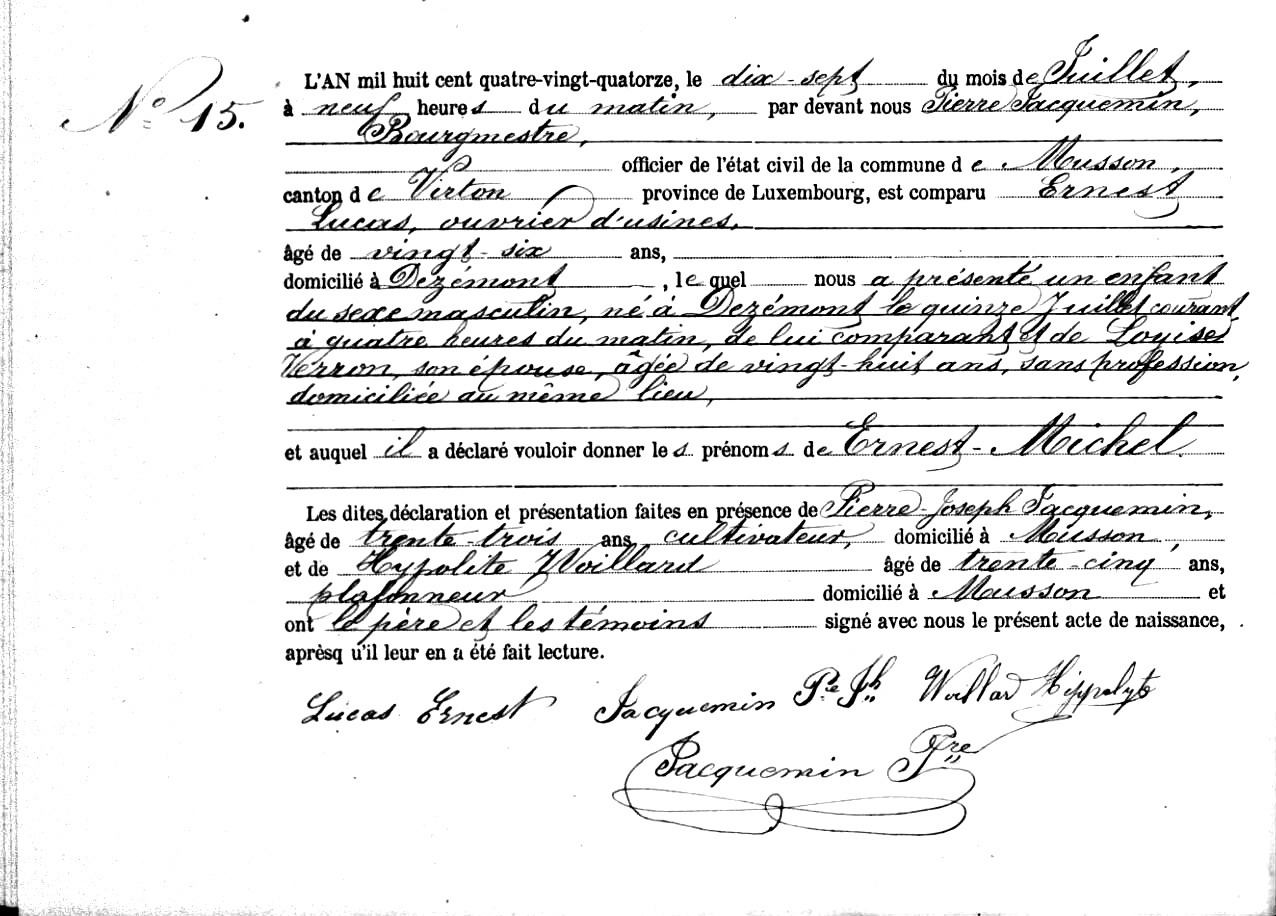 N° 15.
L'AN mil huit cent quatre-vingt-quatorze, le dix-sept du mois de Juillet,
à neuf heures du matin, par devant nous Pierre Jacquemin,
Bourgmestre,
officier de l'état civil de la commune de Musson,
canton de Virton province de Luxembourg, est comparu Ernest
Lucas, ouvrier d'usines,
âgé de vingt-six ans,
domicilié à Dezémont, lequel nous a présenté un enfant
du sexe masculin, né à Dezémont le quinze Juillet courant,
à quatre heures du matin, de lui comparant et de Louise
Verron, son épouse, âgée de vingt-huit ans, sans profession,
domiciliée au même lieu,
et auquel il a déclaré vouloir donner les prénoms de Ernest-Michel.
Les dites déclaration et présentation faites en présence de Pierre-Joseph Jacquemin,
âgé de trente-trois ans cultivateur, domicilié à Musson,
et de Hypolite Woillard âgé de trente-cinq ans,
plafonneur domicilié à Musson et
ont le père et les témoins signé avec nous le présent acte de naissance,
aprèsq u'il leur en a été fait lecture.
Lucas Ernest Jacquemin Pre Jh Woillard Hippolyte
Jacquemin Pre